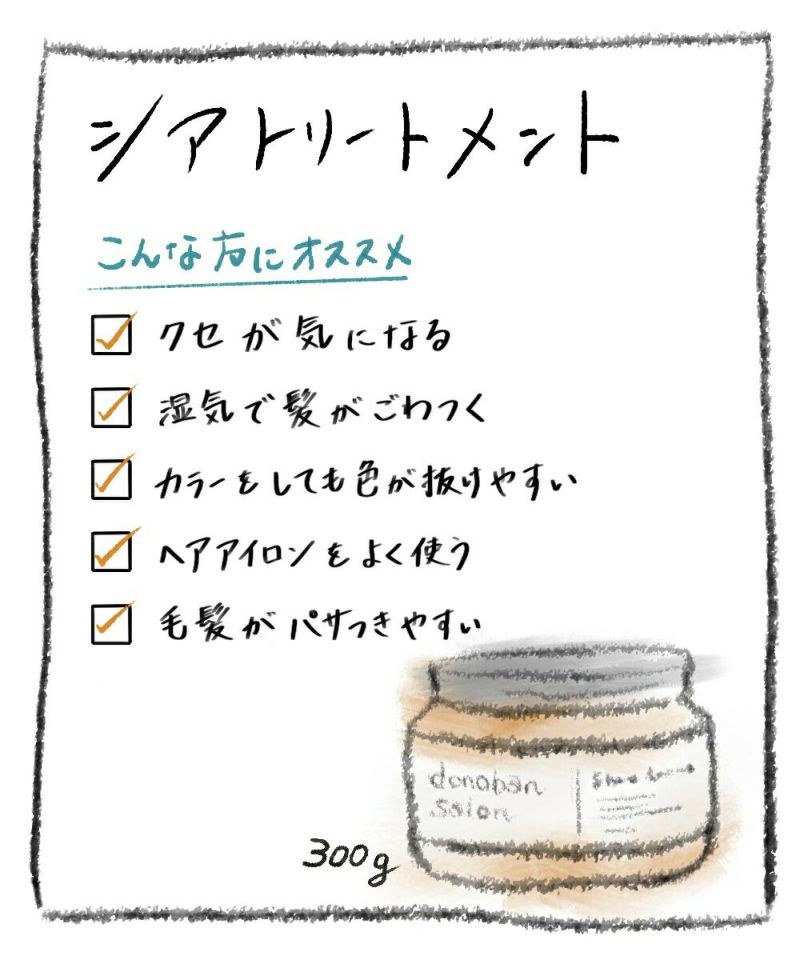 シアトリートメント
こんな方にオススメ
クセが気になる
湿気で髪がごわつく
カラーをしても色が抜けやすい
ヘアアイロンをよく使う
毛髪がパサつきやすい
donoban
salon
300g